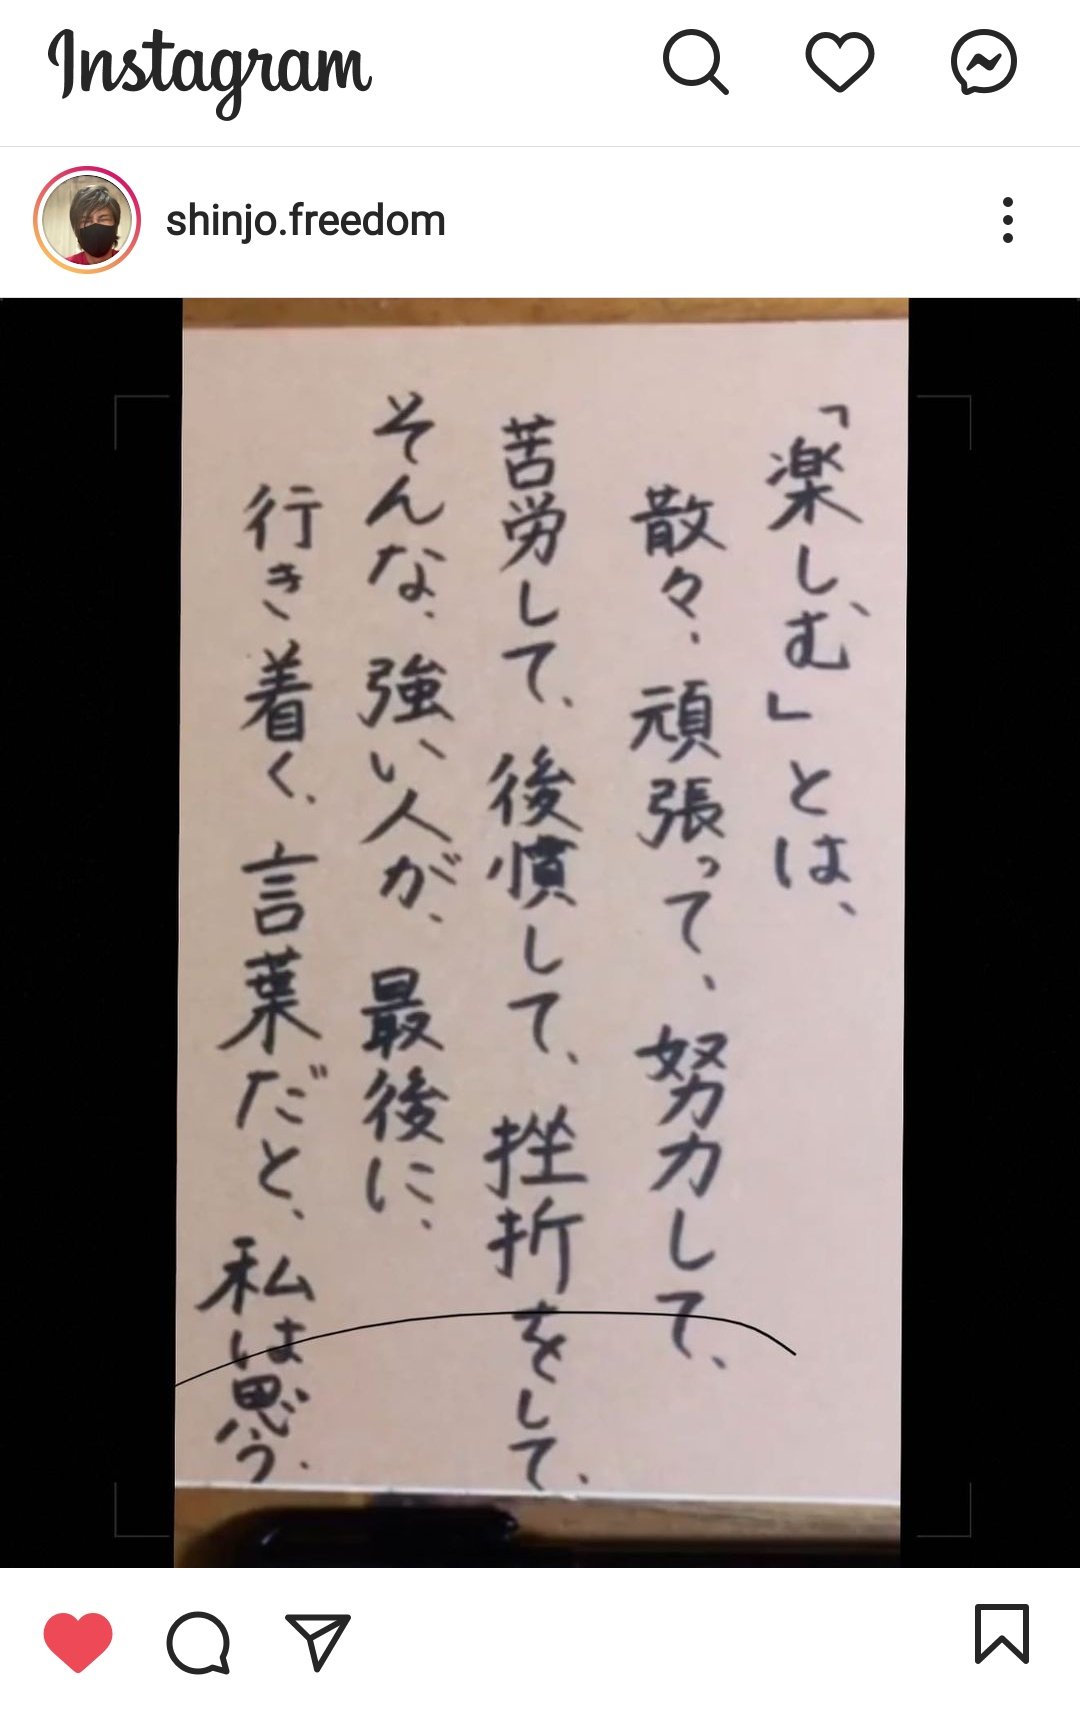 Instagram
shinjo.freedom
「楽しむ」とは、
散々、頑張って、努力して、
苦労して、後慣して、挫折をして、
そんな、強い人が、最後に、
行き着く、言葉だと、私は思う、